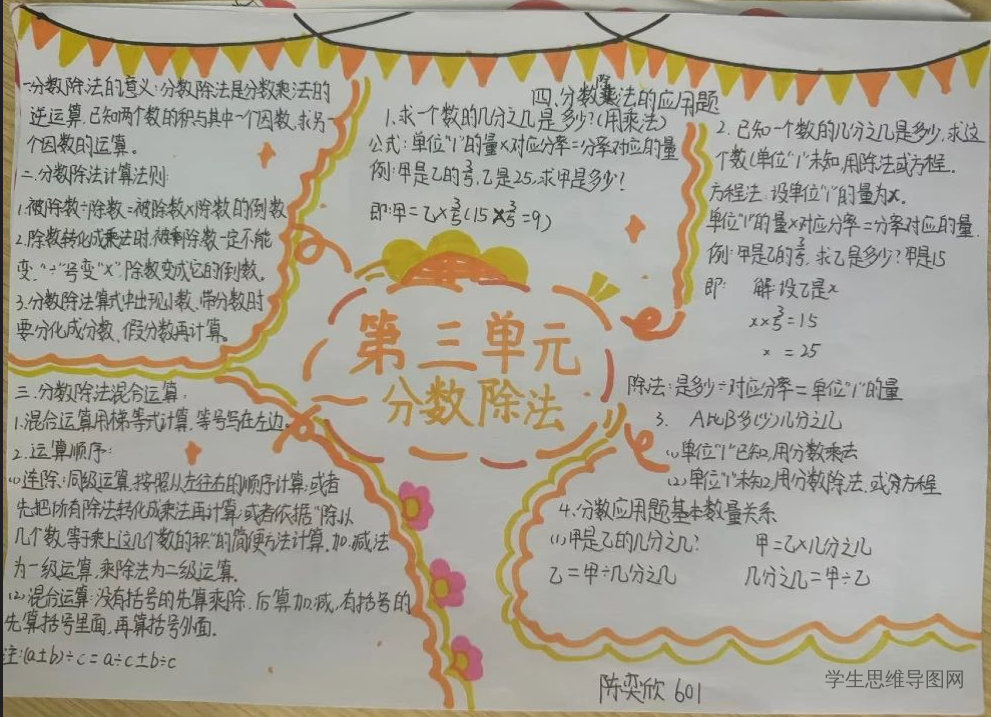 一分数除法的意义:分数除法是分数乘法的
逆运算,已知两个数的积与其中一个因数,求另一
个因数的运算。
二.分数除法计算法则:
1.被除数÷除数=被除数×除数的倒数
2.除数转化成乘法时,被除数一定不能
变,"÷"号变"×",除数变成它的倒数。
3.分数除法算式中出现小数、带分数时
要分化成分数、假分数再计算。
三.分数除法混合运算:
1.混合运算用梯等式计算,等号写在左边。
2.运算顺序:
(1)连除:同级运算,按照从左往右的顺序计算;或者
先把所有除法转化成乘法再计算;或者依据"除以
几个数,等于乘上这几个数的积"的简便方法计算,加、减法
为一级运算,乘除法为二级运算。
(2)混合运算:没有括号的先算乘除,后算加减,有括号的
先算括号里面,再算括号外面。
注:(a±b)÷c=a÷c±b÷c
第三单元
分数除法
四.分数除法的应用题
1.求一个数的几分之几是多少?(用乘法)
公式:单位"1"的量×对应分率=分率对应的量
例:甲是乙的3/5,乙是25,求甲是多少?
即:甲=乙×3/5(15×3/5=9)
2.已知一个数的几分之几是多少,求这
个数(单位"1"未知,用除法或方程.
方程法:设单位"1"的量为x.
单位"1"的量×对应分率=分率对应的量.
例:甲是乙的3/5,求乙是多少?甲是15
即: 解:设乙是x
x×3/5=15
x=25
除法:是多少÷对应分率=单位"1"的量
3. A比B多(少)几分之几
(1)单位"1"已知,用分数乘去
(2)单位"1"未知,用分数除法,或方程
4.分数应用题基本数量关系
(1)甲是乙的几分之几? 甲=乙×几分之几
乙=甲÷几分之几 几分之几=甲÷乙
陈奕欣 601
学生思维导图网